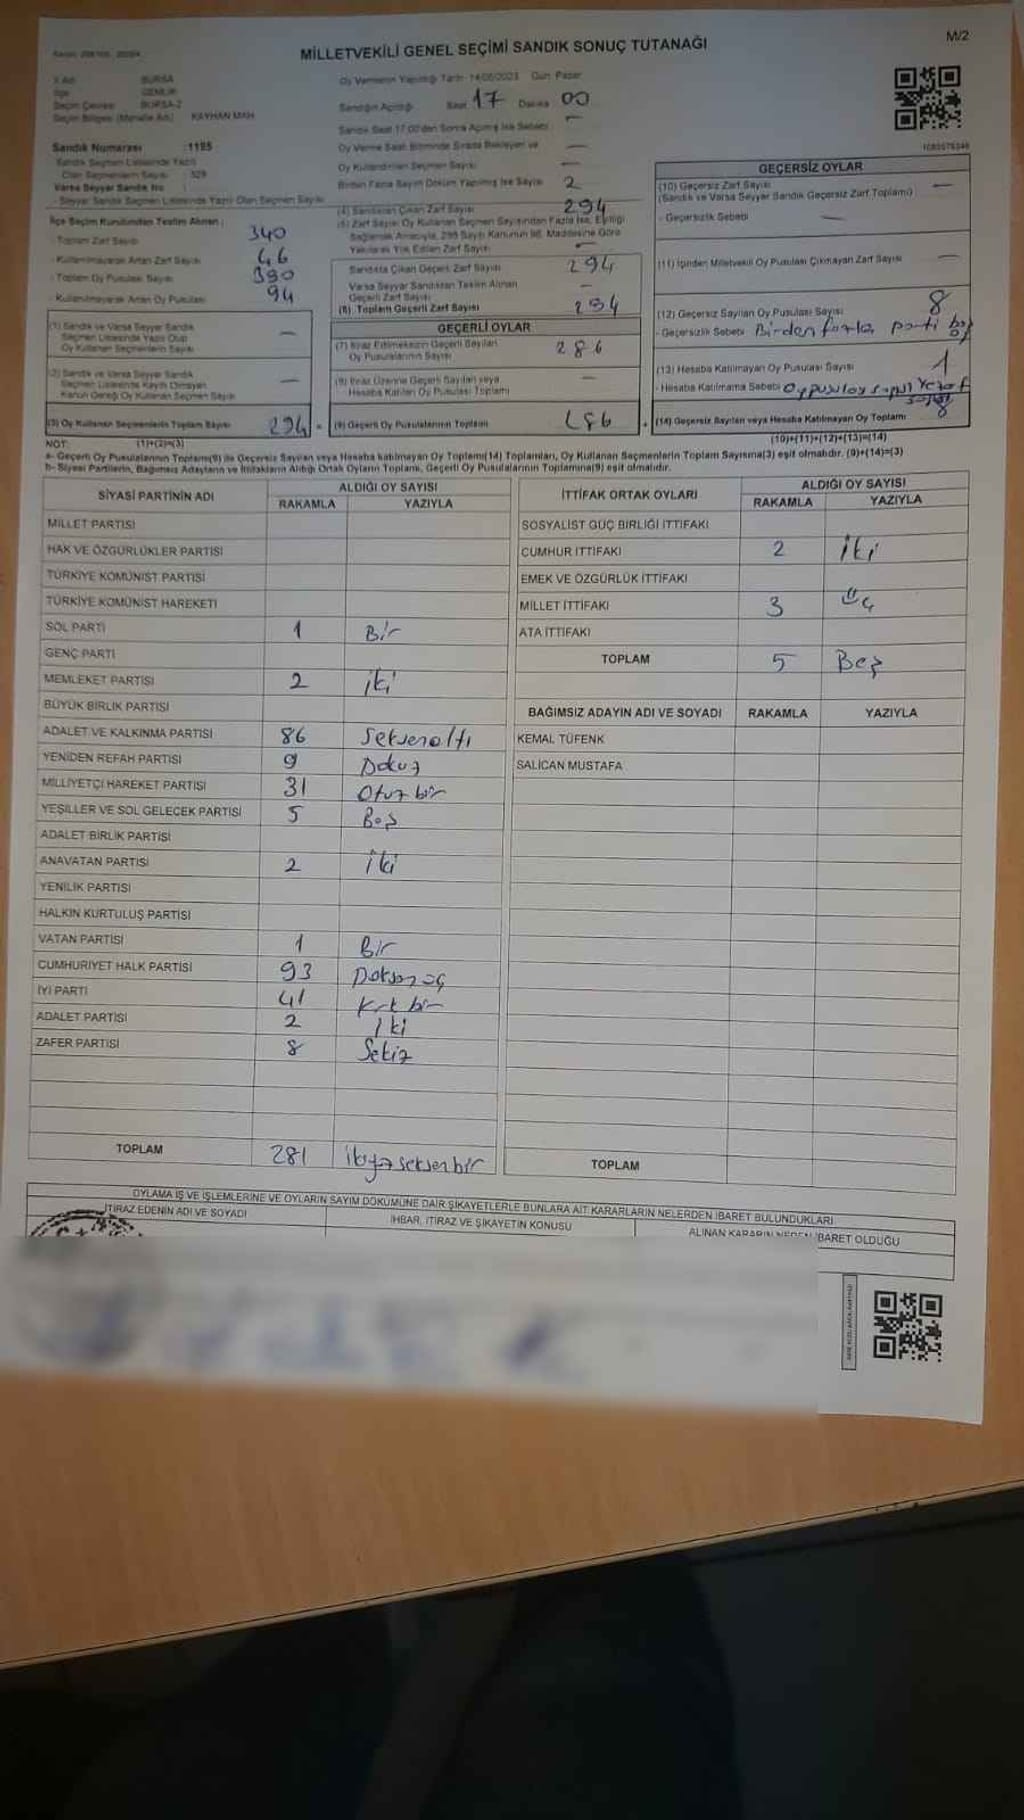 M/2
MİLLETVEKİLİ GENEL SEÇİMİ SANDIK SONUÇ TUTANAĞI
İl Adı BURSA
İlçe GEMLİK
Seçim Çevresi BURSA-2
Seçim Bölgesi (Mahalle Adı) KAYHAN MAH
Sandık Numarası :1195
Sandık Seçmen Listesinde Yazılı
Olan Seçmenlerin Sayısı : 329
Varsa Seyyar Sandık No :
Seyyar Sandık Seçmen Listesinde Yazılı Olan Seçmen Sayısı
İlçe Seçim Kurulundan Teslim Alınan :
- Toplam Zarf Sayısı 340
- Kullanılmayarak Artan Zarf Sayısı 46
- Toplam Oy Pusulası Sayısı 390
- Kullanılmayarak Artan Oy Pusulası 94
(1) Sandık ve Varsa Seyyar Sandık
Seçmen Listesinde Yazılı Olup
Oy Kullanan Seçmenlerin Sayısı —
(2) Sandık ve Varsa Seyyar Sandık
Seçmen Listesinde Kaydı Olmayan
Kanun Gereği Oy Kullanan Seçmen Sayısı —
(3) Oy Kullanan Seçmenlerin Toplam Sayısı 294 =
Oy Vermenin Yapıldığı Tarih 14/05/2023 Gün Pazar
Sandığın Açıldığı Saat 17 Dakika 00
Sandık Saat 17:00'den Sonra Açılmış İse Sebebi —
Oy Verme Saati Bitiminde Sırada Bekleyen ve
Oy Kullandırılan Seçmen Sayısı —
Birden Fazla Sayım Döküm Yapılmış İse Sayısı 2
(4) Sandıktan Çıkan Zarf Sayısı 294
(5) Zarf Sayısı Oy Kullanan Seçmen Sayısından Fazla İse, Eşitliği
Sağlamak Amacıyla, 298 Sayılı Kanunun 98. Maddesine Göre
Yakılarak Yok Edilen Zarf Sayısı —
Sandıkta Çıkan Geçerli Zarf Sayısı 294
Varsa Seyyar Sandıktan Teslim Alınan
Geçerli Zarf Sayısı —
(6) Toplam Geçerli Zarf Sayısı 294
GEÇERLİ OYLAR
(7) İtiraz Edilmeksizin Geçerli Sayılan
Oy Pusulalarının Sayısı 286
(8) İtiraz Üzerine Geçerli Sayılan veya
Hesaba Katılan Oy Pusulası Toplamı —
(9) Geçerli Oy Pusulalarının Toplamı 286 +
GEÇERSİZ OYLAR
(10) Geçersiz Zarf Sayısı —
(Sandık ve Varsa Seyyar Sandık Geçersiz Zarf Toplamı)
- Geçersizlik Sebebi —
(11) İçinden Milletvekili Oy Pusulası Çıkmayan Zarf Sayısı —
(12) Geçersiz Sayılan Oy Pusulası Sayısı 8
- Geçersizlik Sebebi Birden fazla parti
(13) Hesaba Katılmayan Oy Pusulası Sayısı 1
- Hesaba Katılmama Sebebi
(14) Geçersiz Sayılan veya Hesaba Katılmayan Oy Toplamı 8
NOT: (1)+(2)=(3) (10)+(11)+(12)+(13)=(14)
a- Geçerli Oy Pusulalarının Toplamı(9) ile Geçersiz Sayılan veya Hesaba katılmayan Oy Toplamı(14) Toplamları, Oy Kullanan Seçmenlerin Toplam Sayısına(3) eşit olmalıdır. (9)+(14)=(3)
b- Siyasi Partilerin, Bağımsız Adayların ve İttifakların Aldığı Ortak Oyların Toplamı, Geçerli Oy Pusulalarının Toplamına(9) eşit olmalıdır.
SİYASİ PARTİNİN ADI ALDIĞI OY SAYISI
RAKAMLA YAZIYLA
MİLLET PARTİSİ
HAK VE ÖZGÜRLÜKLER PARTİSİ
TÜRKİYE KOMÜNİST PARTİSİ
TÜRKİYE KOMÜNİST HAREKETİ
SOL PARTİ 1 Bir
GENÇ PARTİ
MEMLEKET PARTİSİ 2 iki
BÜYÜK BİRLİK PARTİSİ
ADALET VE KALKINMA PARTİSİ 86 Seksenaltı
YENİDEN REFAH PARTİSİ 9 Dokuz
MİLLİYETÇİ HAREKET PARTİSİ 31 Otuz bir
YEŞİLLER VE SOL GELECEK PARTİSİ 5 Beş
ADALET BİRLİK PARTİSİ
ANAVATAN PARTİSİ 2 iki
YENİLİK PARTİSİ
HALKIN KURTULUŞ PARTİSİ
VATAN PARTİSİ 1 Bir
CUMHURİYET HALK PARTİSİ 93 Doksan üç
İYİ PARTİ 41 Kırk bir
ADALET PARTİSİ 2 İki
ZAFER PARTİSİ 8 Sekiz
TOPLAM 281 ikiyüzseksenbir
İTTİFAK ORTAK OYLARI ALDIĞI OY SAYISI
RAKAMLA YAZIYLA
SOSYALİST GÜÇ BİRLİĞİ İTTİFAKI
CUMHUR İTTİFAKI 2 İki
EMEK VE ÖZGÜRLÜK İTTİFAKI
MİLLET İTTİFAKI 3 Üç
ATA İTTİFAKI
TOPLAM 5 Beş
BAĞIMSIZ ADAYIN ADI VE SOYADI RAKAMLA YAZIYLA
KEMAL TÜFENK
SALİCAN MUSTAFA
TOPLAM
OYLAMA İŞ VE İŞLEMLERİNE VE OYLARIN SAYIM DÖKÜMÜNE DAİR ŞİKAYETLERLE BUNLARA AİT KARARLARIN NELERDEN İBARET BULUNDUKLARI
İTİRAZ EDENİN ADI VE SOYADI İHBAR, İTİRAZ VE ŞİKAYETİN KONUSU ALINAN KARARIN NEDEN İBARET OLDUĞU